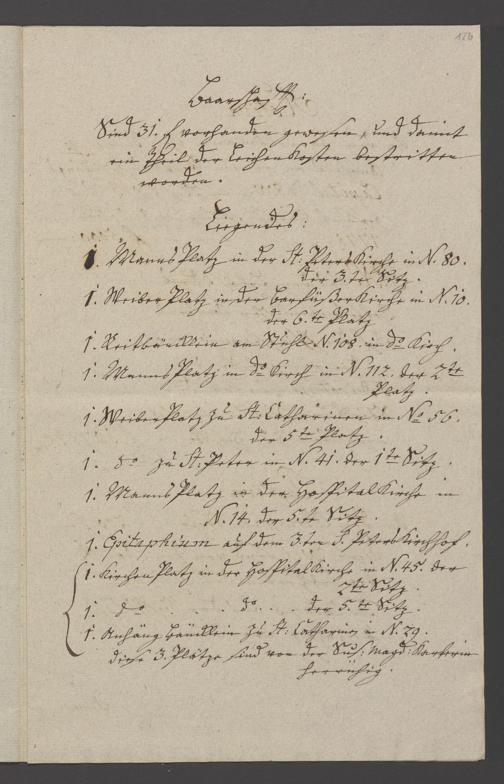 126
Baarschafft:
Sind 31. f vorhanden gewesen, und damit
ein Theil der Leichen Kosten bestritten
worden.
Liegendes:
1. Manns Platz in der St: Peters Kirche in N. 80.
der 3.te Sitz.
1. Weiber Platz in der Barfüßer Kirche in N. 10.
der 6.te Platz
1. Reitbäncklein am Stuhl N. 108. in do Kirch.
1. Manns Platz in do Kirch in N. 112. der 2te
Platz.
1. Weiber Platz zu St: Catharinen in No 56.
der 5te Platz.
1. do zu St: Peter in N. 41. der 1te Sitz.
1. Manns Platz in der Hospital Kirche in
N. 14. der 5.te Sitz.
1. Epitaphium auf dem 3ten St. Peters Kirchhof.
1. Kirchen Platz in der Hospital Kirche in N. 45. der
2te Sitz.
1. do . . do . . der 5.te Sitz.
1. Anhäng Bäncklein zu St: Catharinen in N. 29.
diese 3. Plätze sind von der Sus: Magd:
herrührig.